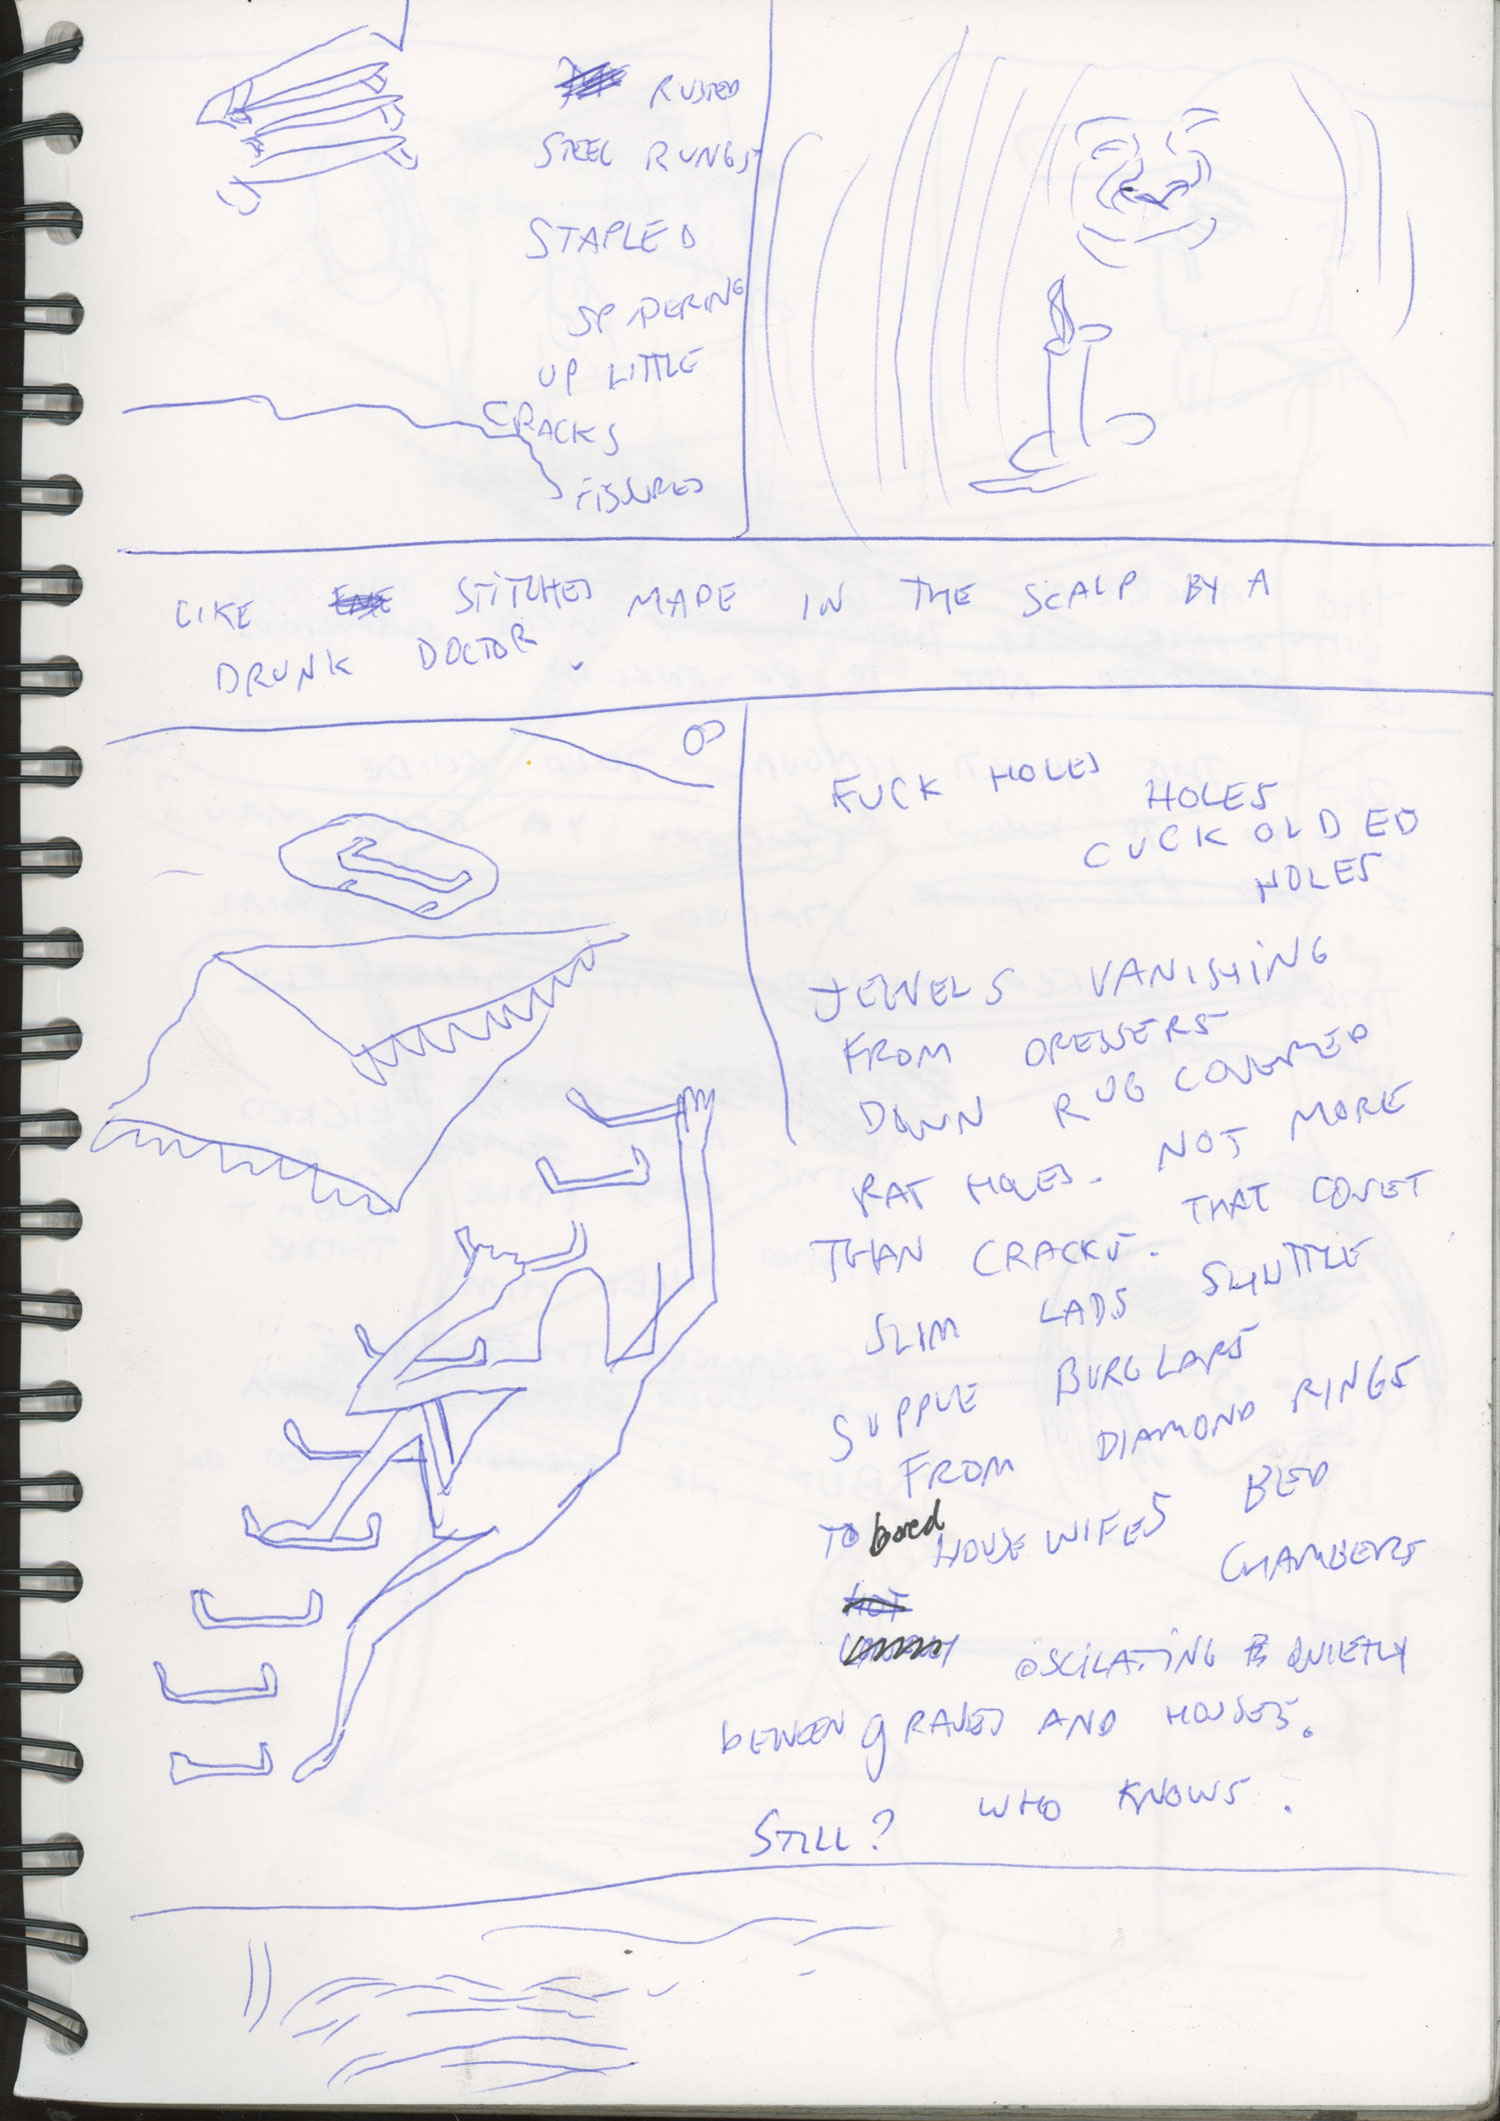 RUSTED
STEEL RUNGS
STAPLED
SPIDERING
UP LITTLE
CRACKS
FISSURES
LIKE STITCHES MADE IN THE SCALP BY A
DRUNK DOCTOR.
FUCK HOLES
HOLES
CUCKOLDED
HOLES
JEWELS VANISHING
FROM DRESSERS
DOWN RUG COVERED
RAT HOLES. NOT MORE
THAN CRACKS. THAT COVET
SLIM LADS SHUTTLE
SUPPLE BURGLARS
FROM DIAMOND RINGS
TO bored HOUSEWIFES BED
CHAMBERS
OSCILATING QUIETLY
bETWEEN gRAVES AND HOUSES.
STILL? WHO KNOWS.